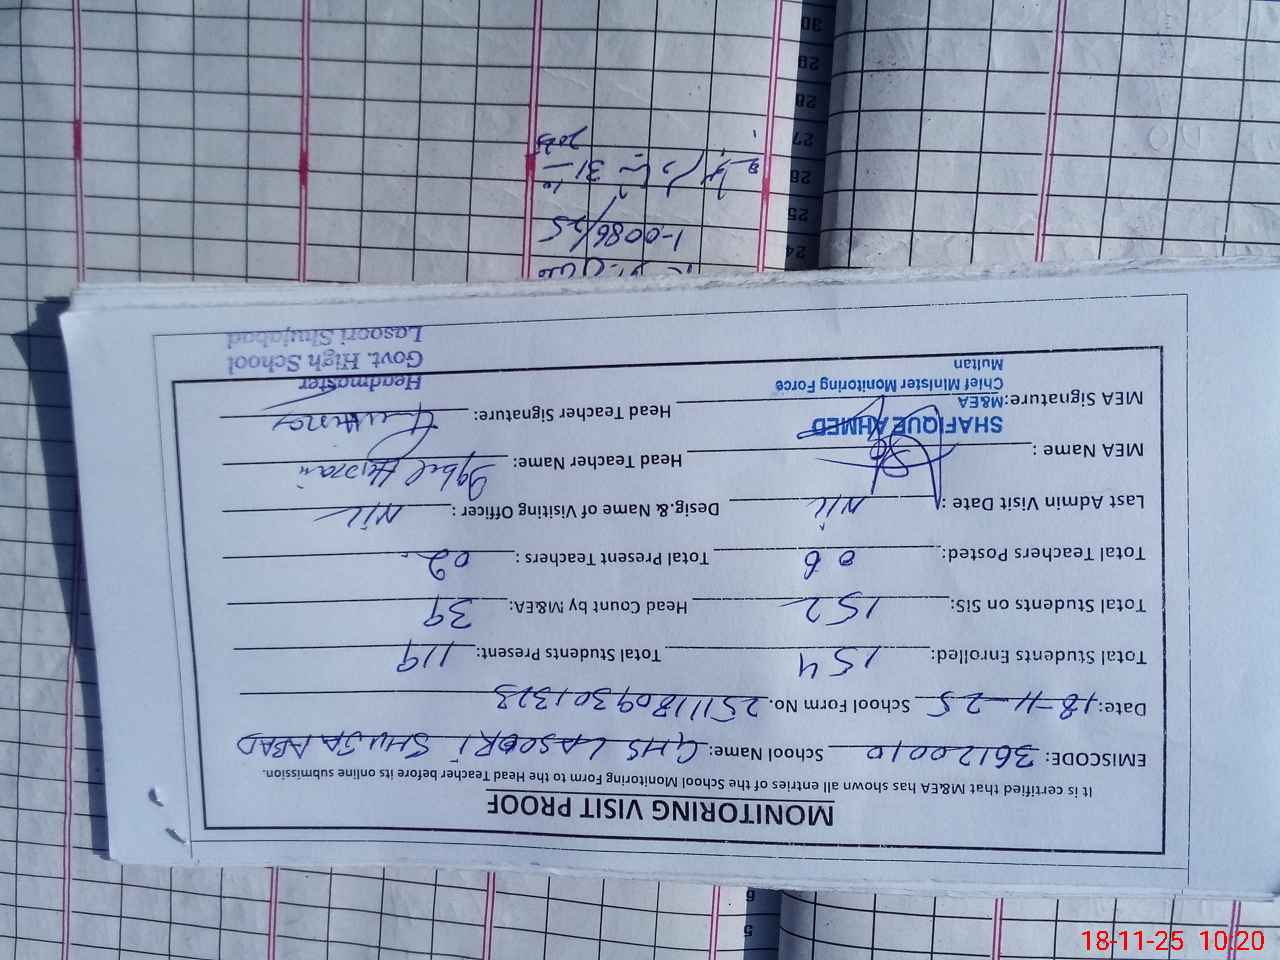 MONITORING VISIT PROOF
It is certified that M&EA has shown all entries of the School Monitoring Form to the Head Teacher before its online submission.
EMISCODE: 36120010 School Name: GHS LASOORI SHUJAABAD
Date: 18-11-25 School Form No. 25111809301323
Total Students Enrolled: 154 Total Students Present: 119
Total Students on SIS: 152 Head Count by M&EA: 39
Total Teachers Posted: 06 Total Present Teachers : 02
Last Admin Visit Date : Nil Desig.& Name of Visiting Officer : Nil
MEA Name : Head Teacher Name: Iqbal Hussain
SHAFIQUE AHMED
MEA Signature: Head Teacher Signature:
M&EA
Chief Minister Monitoring Force
Multan
Headmaster
Govt. High School
Lasoori Shujabad
1-0086/25
31
2025
5
6
24
25
26
27
28
29
30
18-11-25 10:20